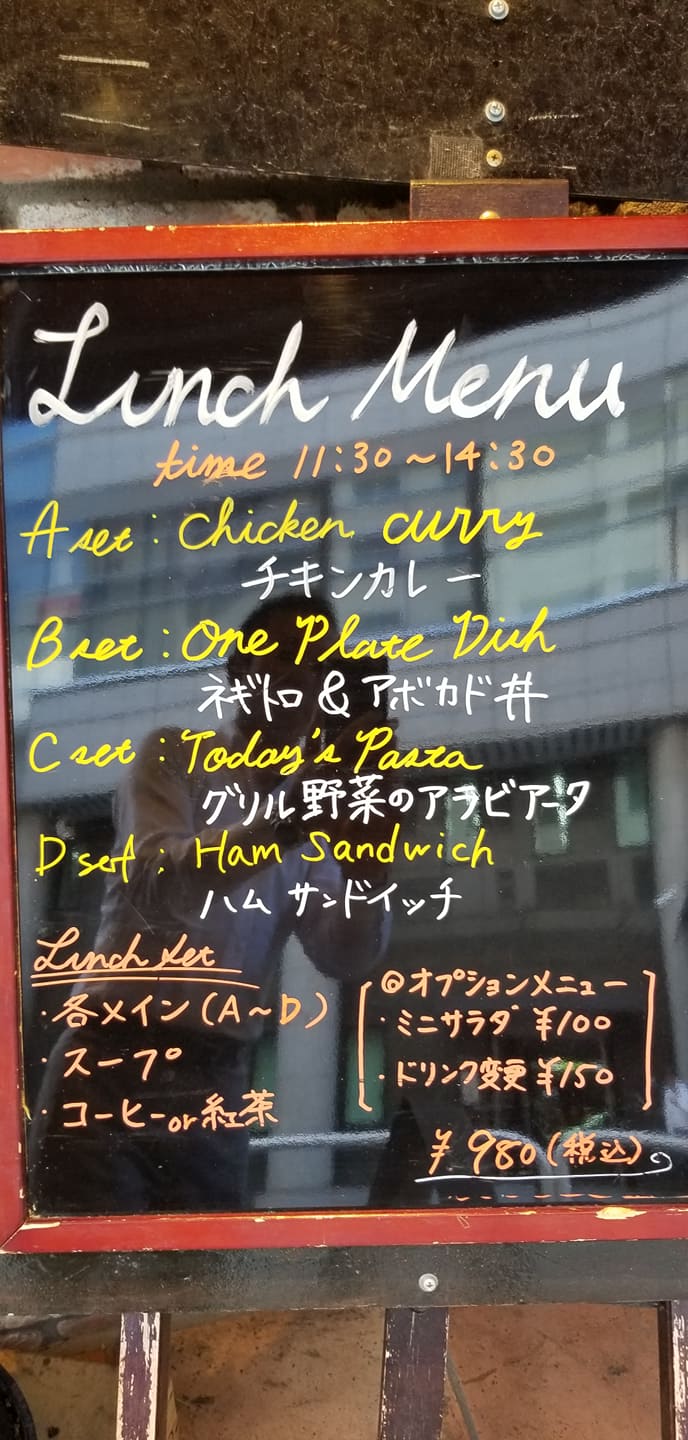 Lunch Menu
time 11:30~14:30
A set : Chicken curry
チキンカレー
B set : One Plate Dish
ネギトロ & アボカド丼
C set : Today's Pasta
グリル野菜のアラビアータ
D set : Ham Sandwich
ハム サンドイッチ
Lunch set
・各メイン(A~D)
・スープ
・コーヒーor紅茶
◎オプションメニュー
・ミニサラダ ¥100
・ドリンク変更 ¥150
¥980(税込)